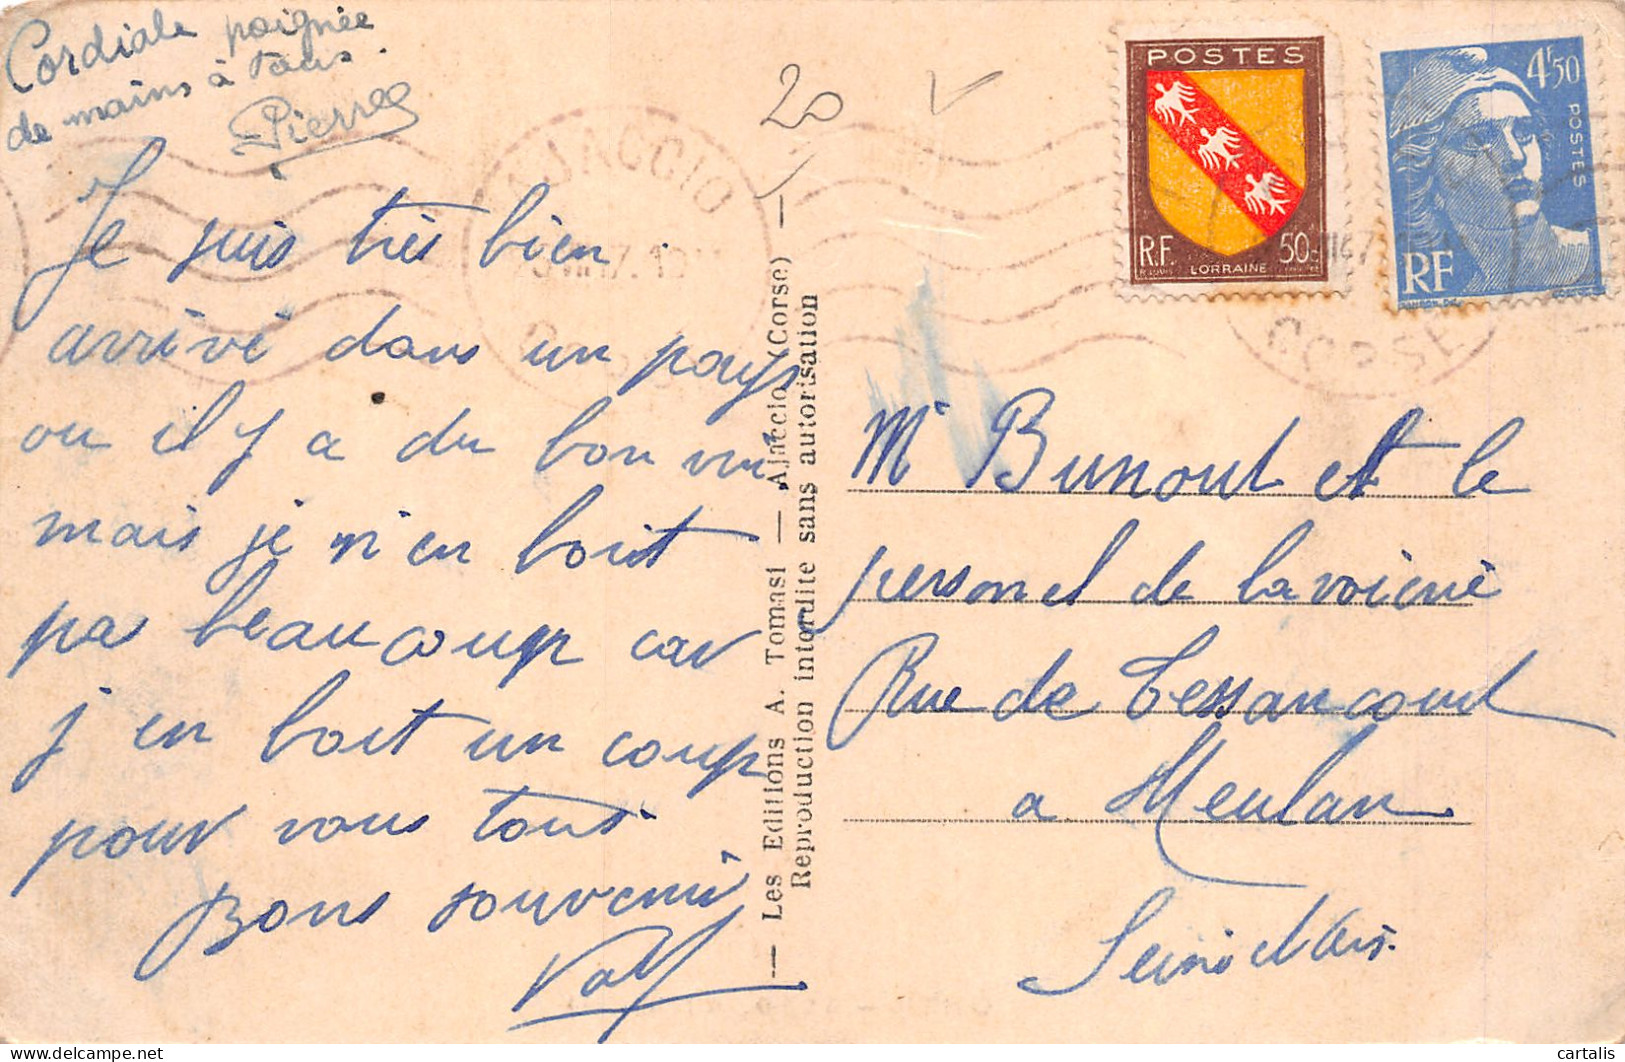 Cordiale poignée
de mains à tous.
Pierre
Je suis très bien
arrivé dans un pays
ou il y a du bon vin
mais je n'en boit
pas beaucoup car
j en boit un coup
pour vous tous
Bons souvenir
20
AJACCIO
CORSE
POSTES
R.F.
50c
LORRAINE
4F50
POSTES
RF
— Les Editions A. Tomasi — Ajaccio (Corse) —
Reproduction interdite sans autorisation
Mr Bunout et le
personel de la voirie
Rue de Tessancourt
a Meulan
Seine et Oise.
cartalis